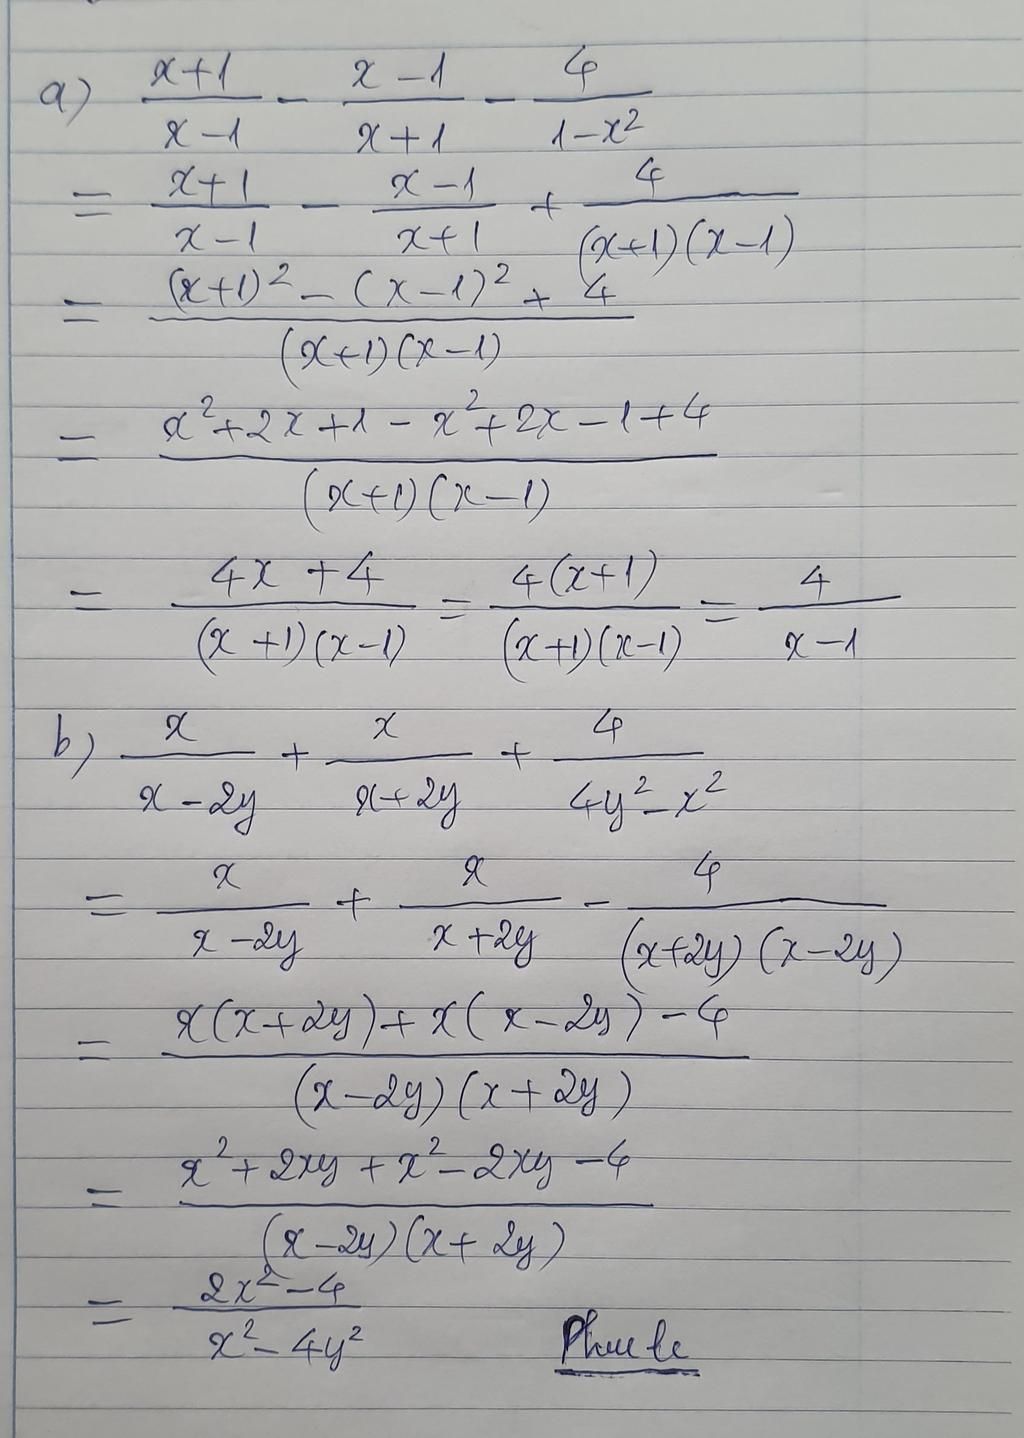 a) \frac{x+1}{x-1} - \frac{x-1}{x+1} - \frac{4}{1-x^2}
= \frac{x+1}{x-1} - \frac{x-1}{x+1} + \frac{4}{(x+1)(x-1)}
= \frac{(x+1)^2 - (x-1)^2 + 4}{(x+1)(x-1)}
= \frac{x^2+2x+1-x^2+2x-1+4}{(x+1)(x-1)}
= \frac{4x+4}{(x+1)(x-1)} = \frac{4(x+1)}{(x+1)(x-1)} = \frac{4}{x-1}
b) \frac{x}{x-2y} + \frac{x}{x+2y} + \frac{4}{4y^2-x^2}
= \frac{x}{x-2y} + \frac{x}{x+2y} - \frac{4}{(x+2y)(x-2y)}
= \frac{x(x+2y)+x(x-2y)-4}{(x-2y)(x+2y)}
= \frac{x^2+2xy+x^2-2xy-4}{(x-2y)(x+2y)}
= \frac{2x^2-4}{x^2-4y^2}